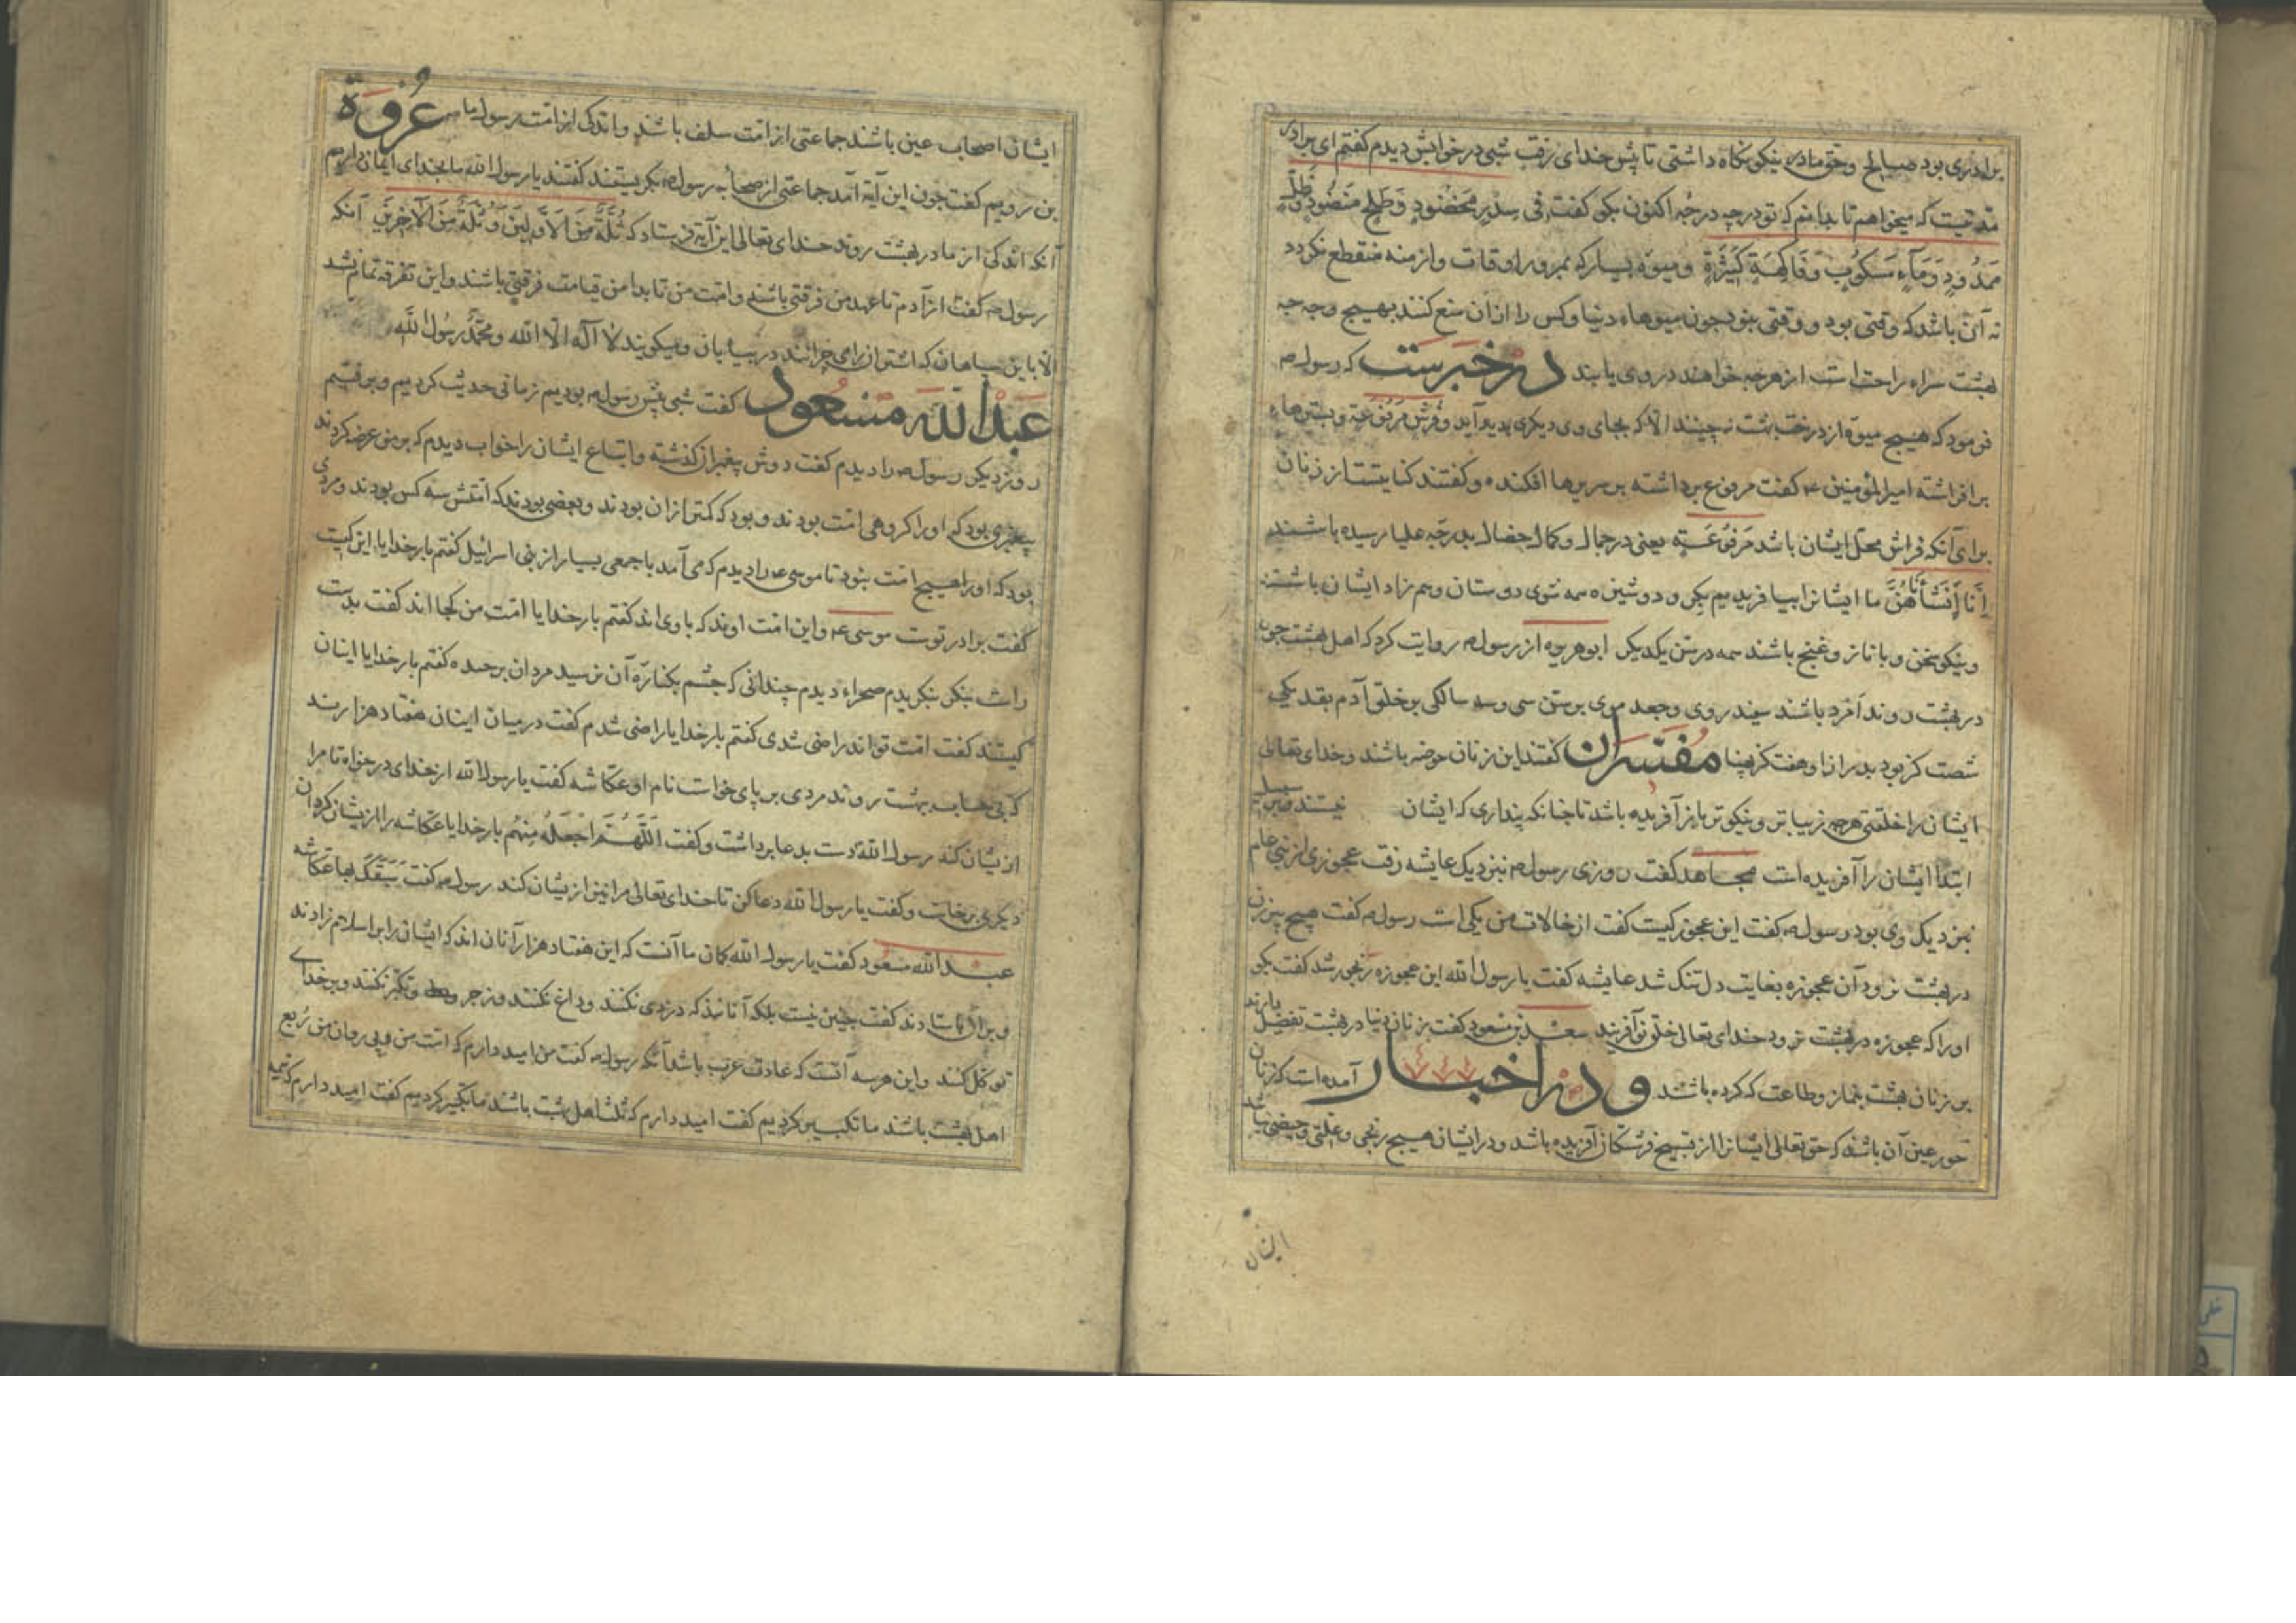 برادری بود صالح وحق مادر نیکو نگاه داشتی تا پیش خدای رفت شبی در خوابش دیدم گفتم ای برادر
مدتیست که میخواهم تا بدانم که تو در چه درجه اکنون بگو گفت فی سِدْرٍ مَخْضُودٍ وَطَلْحٍ مَنْضُودٍ وَظِلٍّ
مَمْدُودٍ وَمَآءٍ مَسْکُوبٍ وَفَاکِهَةٍ کَثِیْرَةٍ ومیوه بسیار که بمرور اوقات وازمنه منقطع نکردد
نه آن باشد که وقتی بود و وقتی نبود چون میوهاء دنیا وکس را از آن منع کنند بهیچ وجه چه
بهشت سراء راحت است از هر چه خواهند در وی یابند در خبرست که رسول ص
فرمود که هیچ میوه از درخت بهشت نچینند الا که بجای وی دیکری پدید آید وفُرُشٍ مَرْفُوعَةٍ وبسترهاء
برافراشته امیرالمؤمنین ع گفت مرفوع برداشته بر سریرها افکنده وگفتند کنایتست از زنان
برای آنکه فراش محل ایشان باشد مَرْفُوعَةٍ یعنی در جمال وکمال خصال بدرجه علیا رسیده باشند
إِنَّا أَنْشَأْنَاهُنَّ ما ایشانرا بیافریدیم بکر و دوشیزه همه شوی دوستان وهم زاد ایشان باشند
ونیکو سخن وبا ناز وغنج باشند همه در سن یکدیکر ابوهریره از رسول ص روایت کرد که اهل بهشت چون
در بهشت روند اَمْرَد باشند سفید روی وجعد موی بر سن سی وسه سالکی بر خلق آدم بقد یکی
شصت کز بود بدرازا وهفت کز بپهنا مفسّران گفتند این زنان حوض باشند وخدای تعالی
ایشان را خلقتی هرچه زیباتر ونیکوتر باز آفریده باشد تا چنانکه پنداری که ایشان نیستند وبر سبیل
ابتدا ایشان را آفریده است مجاهد گفت روزی رسول ص بنزدیک عایشه رفت عجوزی از بنی عام
بنزدیک وی بود رسول ص گفت این عجوز کیست گفت از خالات من یکی است رسول ص گفت هیچ پیر زن
در بهشت نرود آن عجوزه بغایت دل تنک شد عایشه گفت یا رسول الله این عجوزه رنجور شد گفت بکو
اورا که عجوزه در بهشت نرود خدای تعالی خلق نو آفریند سعید بن مسعود گفت زنان دنیا در بهشت تفضیل دارند
بر زنان بهشت بنماز وطاعت که کرده باشند ودر اخبار آمده است که زنان
حور عین آن باشند که حق تعالی ایشانرا از تسبیح فرشتکان آفریده باشد ودر ایشان هیچ رنجی وعلتی وحیضی نباشد
ایشان
ایشان اصحاب عین باشند جماعتی از امت سلف باشند واندکی از امت رسول ما عُرْوَة
بن رویم گفت چون این آیة آمد جماعتی از صحابه رسول ص بکریستند گفتند یا رسول الله ما بخدای ایمان داریم
آنکه اندکی از ما در بهشت روند خدای تعالی این آیة فرستاد که ثُلَّةٌ مِنَ الْأَوَّلِینَ وَثُلَّةٌ مِنَ الْآخِرِینَ آنکه
رسول ص گفت از آدم تا عهد من فرقتی باشند وامت من تا بدامن قیامت فرقتی باشند واین تفرقه تمام نشد
الا باین سیاهان که اشتران را می چرانند در بیابان ومیکویند لا اله الا الله ومحمد رسول الله
عَبْدُ اللّه مَسْعُود گفت شبی پیش رسول ص بودیم زمانی حدیث کردیم وبرفتیم
روز دیکر رسول ص را دیدم گفت دوش پیغمبران گذشته واتباع ایشان را خواب دیدم که بر من عرض کردند
پیغمبری بود که اورا کروهی امت بودند و بود که کمتر ازان بودند وبعضی بودند که امتش سه کس بودند ومردی
بود که اورا هیچ امت نبود تا موسی ع را دیدم که می آمد با جمعی بسیار از بنی اسرائیل گفتم بارخدایا این کیست
گفت برادر توست موسی ع واین امت اوند که با وی اند گفتم بارخدایا امت من کجا اند گفت بدست
راست بنکر بنکریدم صحراء دیدم چندانی که چشم بکناره آن نرسید مردان برجسده گفتم بارخدایا اینان
کیستند گفت امت تو اند راضی شدی گفتم بارخدایا راضی شدم گفت در میان اینان هفتاد هزارند
که بی حساب بهشت روند مردی بر پای خواست نام او عکاشه گفت یا رسول الله از خدای درخواه تا مرا
ازیشان کند رسول الله دست بدعا برداشت وگفت اَللّٰهُمَّ اجْعَلْهُ مِنْهُم بارخدایا عکاشه را ازیشان کردان
دیکری برخاست وگفت یا رسول الله دعا کن تا خدای تعالی مرا نیز ازیشان کند رسول ص گفت سَبَقَکَ بها عکاشه
عبد الله مسعود گفت یا رسول الله کمان ما آنست که این هفتاد هزار آنان اند که ایشان را بر اسلام زادند
وبران باستادند گفت چنین نیست بلکه آنانند که دزدی نکنند وداغ نکنند وزجر وتکبر نکنند وبر خدای
توکل کنند واین هر سه آنست که عادت عرب باشد آنکه رسول ص گفت من امید دارم که امت من وپی روان من رُبع
اهل بهشت باشند ما تکبیر کردیم گفت امید دارم که ثلث اهل بهشت باشند ما تکبیر کردیم گفت امید دارم که نیمه